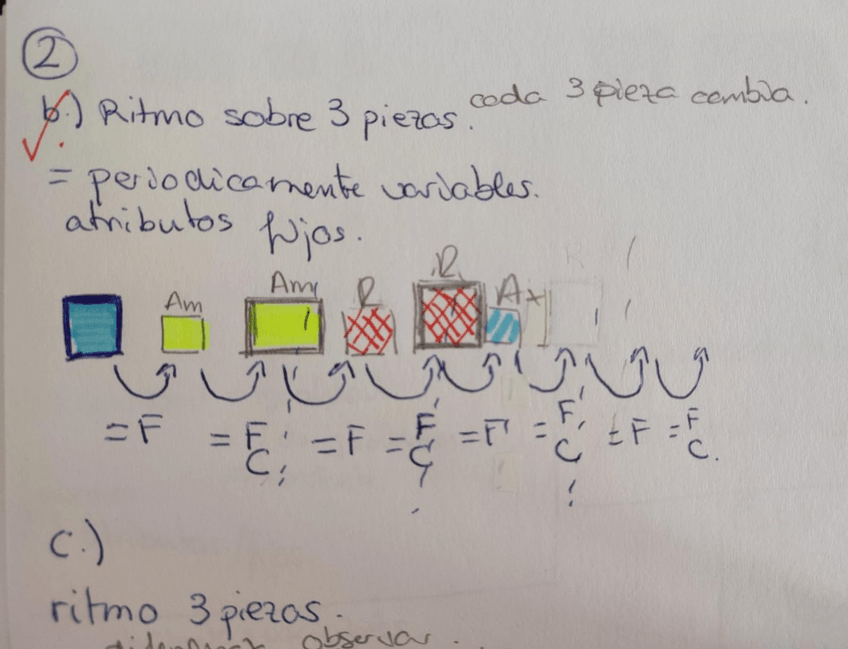 2
b.) Ritmo sobre 3 piezas. cada 3 pieza cambia.
= periodicamente variables.
atributos fijos.
Am Am R R A
= F = F C = F = F C = F = F C ± F = F C.
c.)
ritmo 3 piezas.
observar.